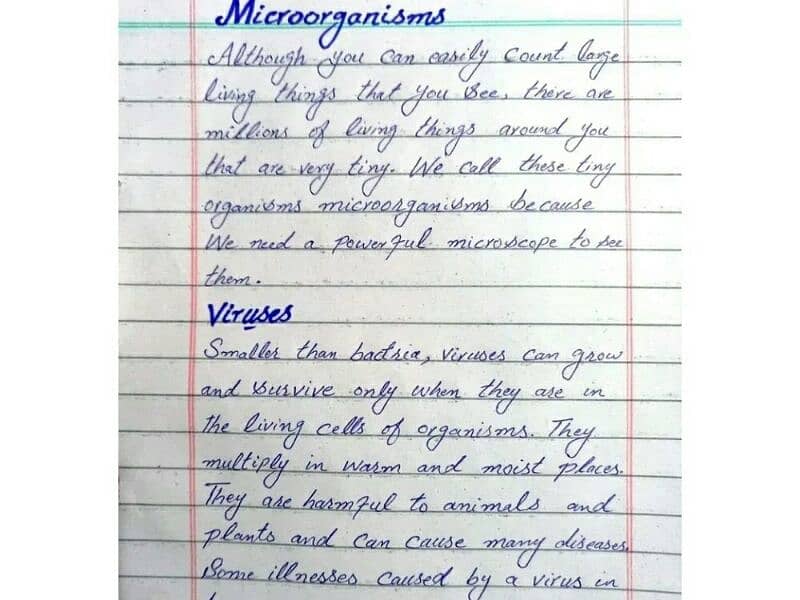 Microorganisms
Although you can easily count large
living things that you see, there are
millions of living things around you
that are very tiny. We call these tiny
organisms microorganisms because
We need a powerful microscope to see
them.
Viruses
Smaller than bactria, viruses can grow
and survive only when they are in
the living cells of organisms. They
multiply in warm and moist places.
They are harmful to animals and
plants and can cause many diseases.
Some illnesses caused by a virus in